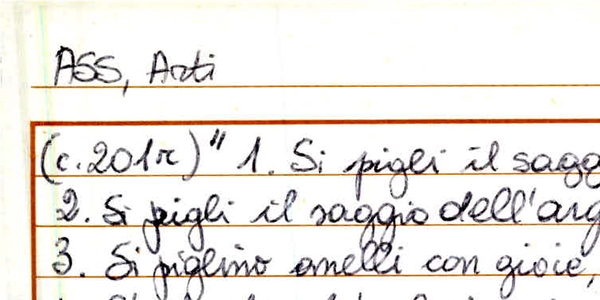 ASS, Arti
(c. 201r) " 1. Si pigli il
2. Si pigli il saggio
3. Si piglino anelli con gioie,